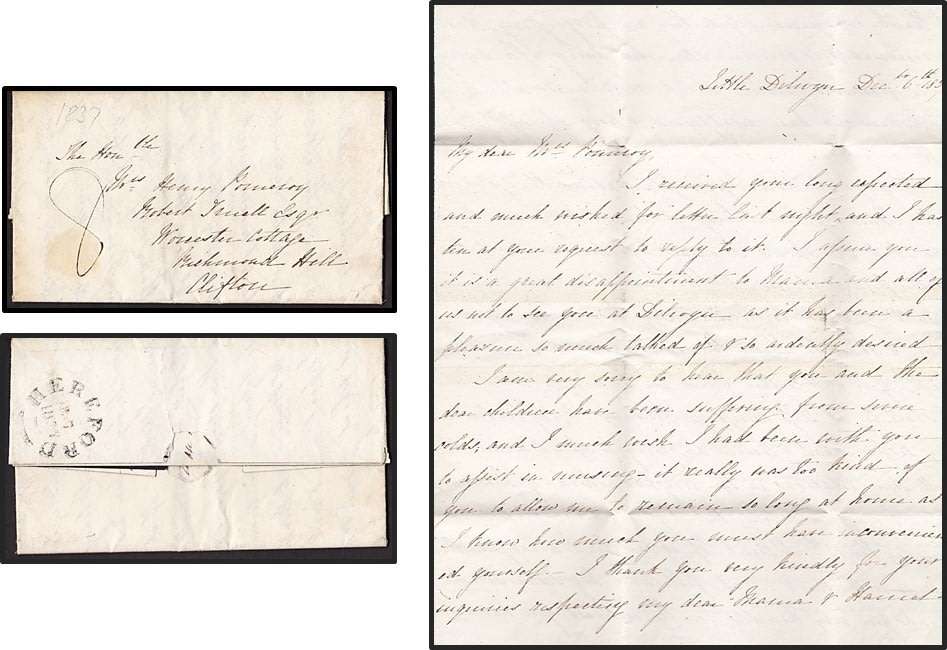 1837
The Hon ble
Mrs Henry Pomeroy
Robert Esqr
Worcester Cottage
Richmond Hill
Clifton
8
HEREFORD
Little Dilwyn Decbr 6th 18
My dear Mrs Pomeroy,
I received your long expected
and much wished for letter last night, and I has
ten at your request to reply to it. I assure you
it is a great disappointment to Mama and all of
us not to see you at Dilwyn as it has been a
pleasure so much talked of & so ardently desired
I am very sorry to hear that you and the
dear children have been suffering from severe
colds, and I much wish I had been with you
to assist in nursing - it really was too kind of
you to allow me to remain so long at home as
I know how much you must have inconvenienc
ed yourself. - I thank you very kindly for your
inquiries respecting my dear Mama & Harriet